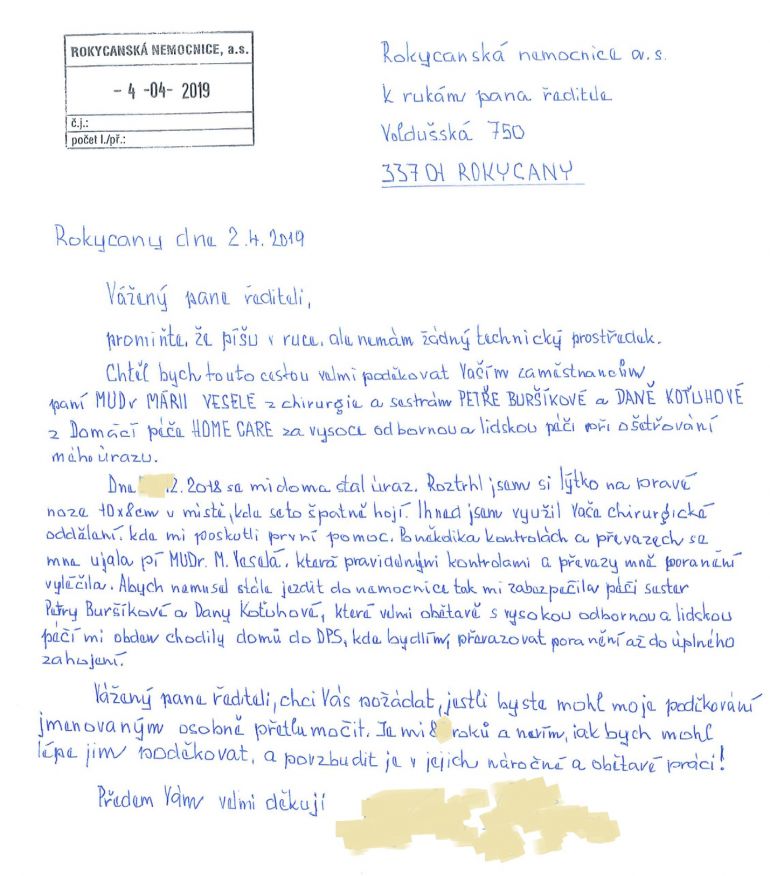 ROKYCANSKÁ NEMOCNICE, a.s.
- 4 -04- 2019
č.j.:
počet l./př.:
Rokycanská nemocnice a.s.
k rukám pana ředitele
Voldušská 750
337 01 ROKYCANY
Rokycany dne 2.4.2019
Vážený pane řediteli,
promiňte, že píšu v ruce, ale nemám žádný technický prostředek.
Chtěl bych touto cestou velmi poděkovat Vačím zaměstnancům
paní MUDr MÁRII VESELÉ z chirurgie a sestrám PETŘE BURŠÍKOVÉ a DANĚ KOŤUHOVÉ
z Domácí péče HOME CARE za vysoce odbornou a lidskou péči při ošetřování
mého úrazu.
Dne 2. 2018 se mi doma stal úraz. Roztrhl jsem si lýtko na pravé
noze 10x8cm v místě, kde se to špatně hojí. Ihned jsem využil Vače chirurgické
oddělení, kde mi poskytli první pomoc. Po několika kontrolách a převazech se
mne ujala pí MUDr. M. Veselá, která pravidelnými kontrolami a převazy mně poranění
vyléčila. Abych nemusel stále jezdit do nemocnice tak mi zabezpečila péči sester
Petry Buršíkové a Dany Koťuhové, které velmi obětavě s vysokou odbornou a lidskou
péčí mi obden chodily domů do DPS, kde bydlím, převazovat poranění až do úplného
zahojení.
Vážený pane řediteli, chci Vás požádat, jestli byste mohl moje poděkování
jmenovaným osobně přetlumočit. Je mi 8 roků a nevím, jak bych mohl
lépe jim poděkovat, a povzbudit je v jejich náročné a obětavé práci!
Předem Vám velmi děkuji